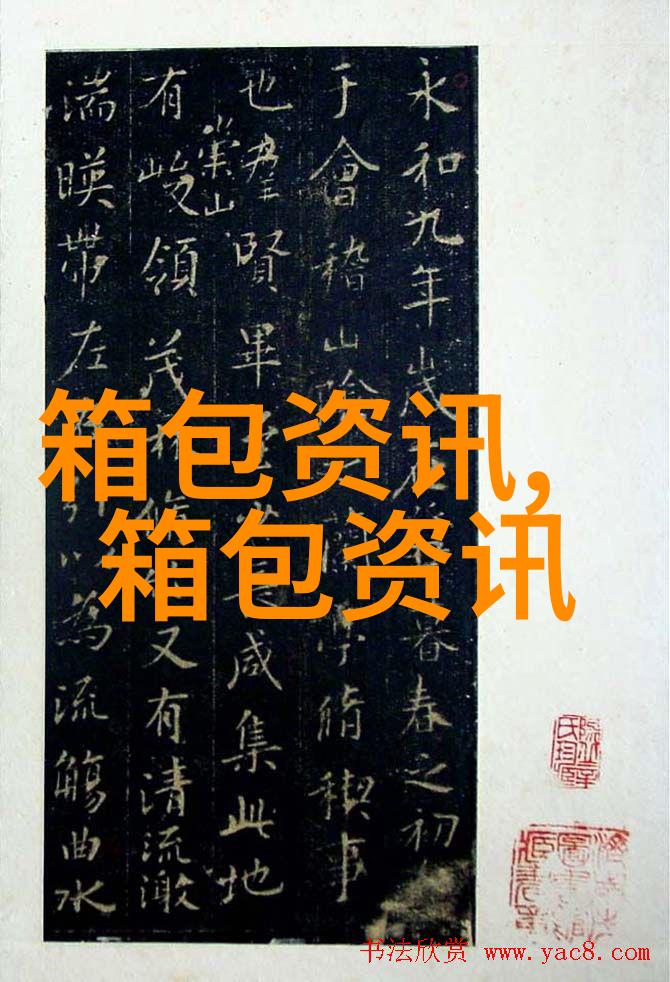 永和九年歲在暮春之初
于會稽山陰亭脩稧事
也羣賢畢咸集此地
有崇山峻領茂林脩又有清流激
湍暎帶左以為流觴曲水
箱包资讯,
箱包资讯
书法欣赏 www.yac8.com